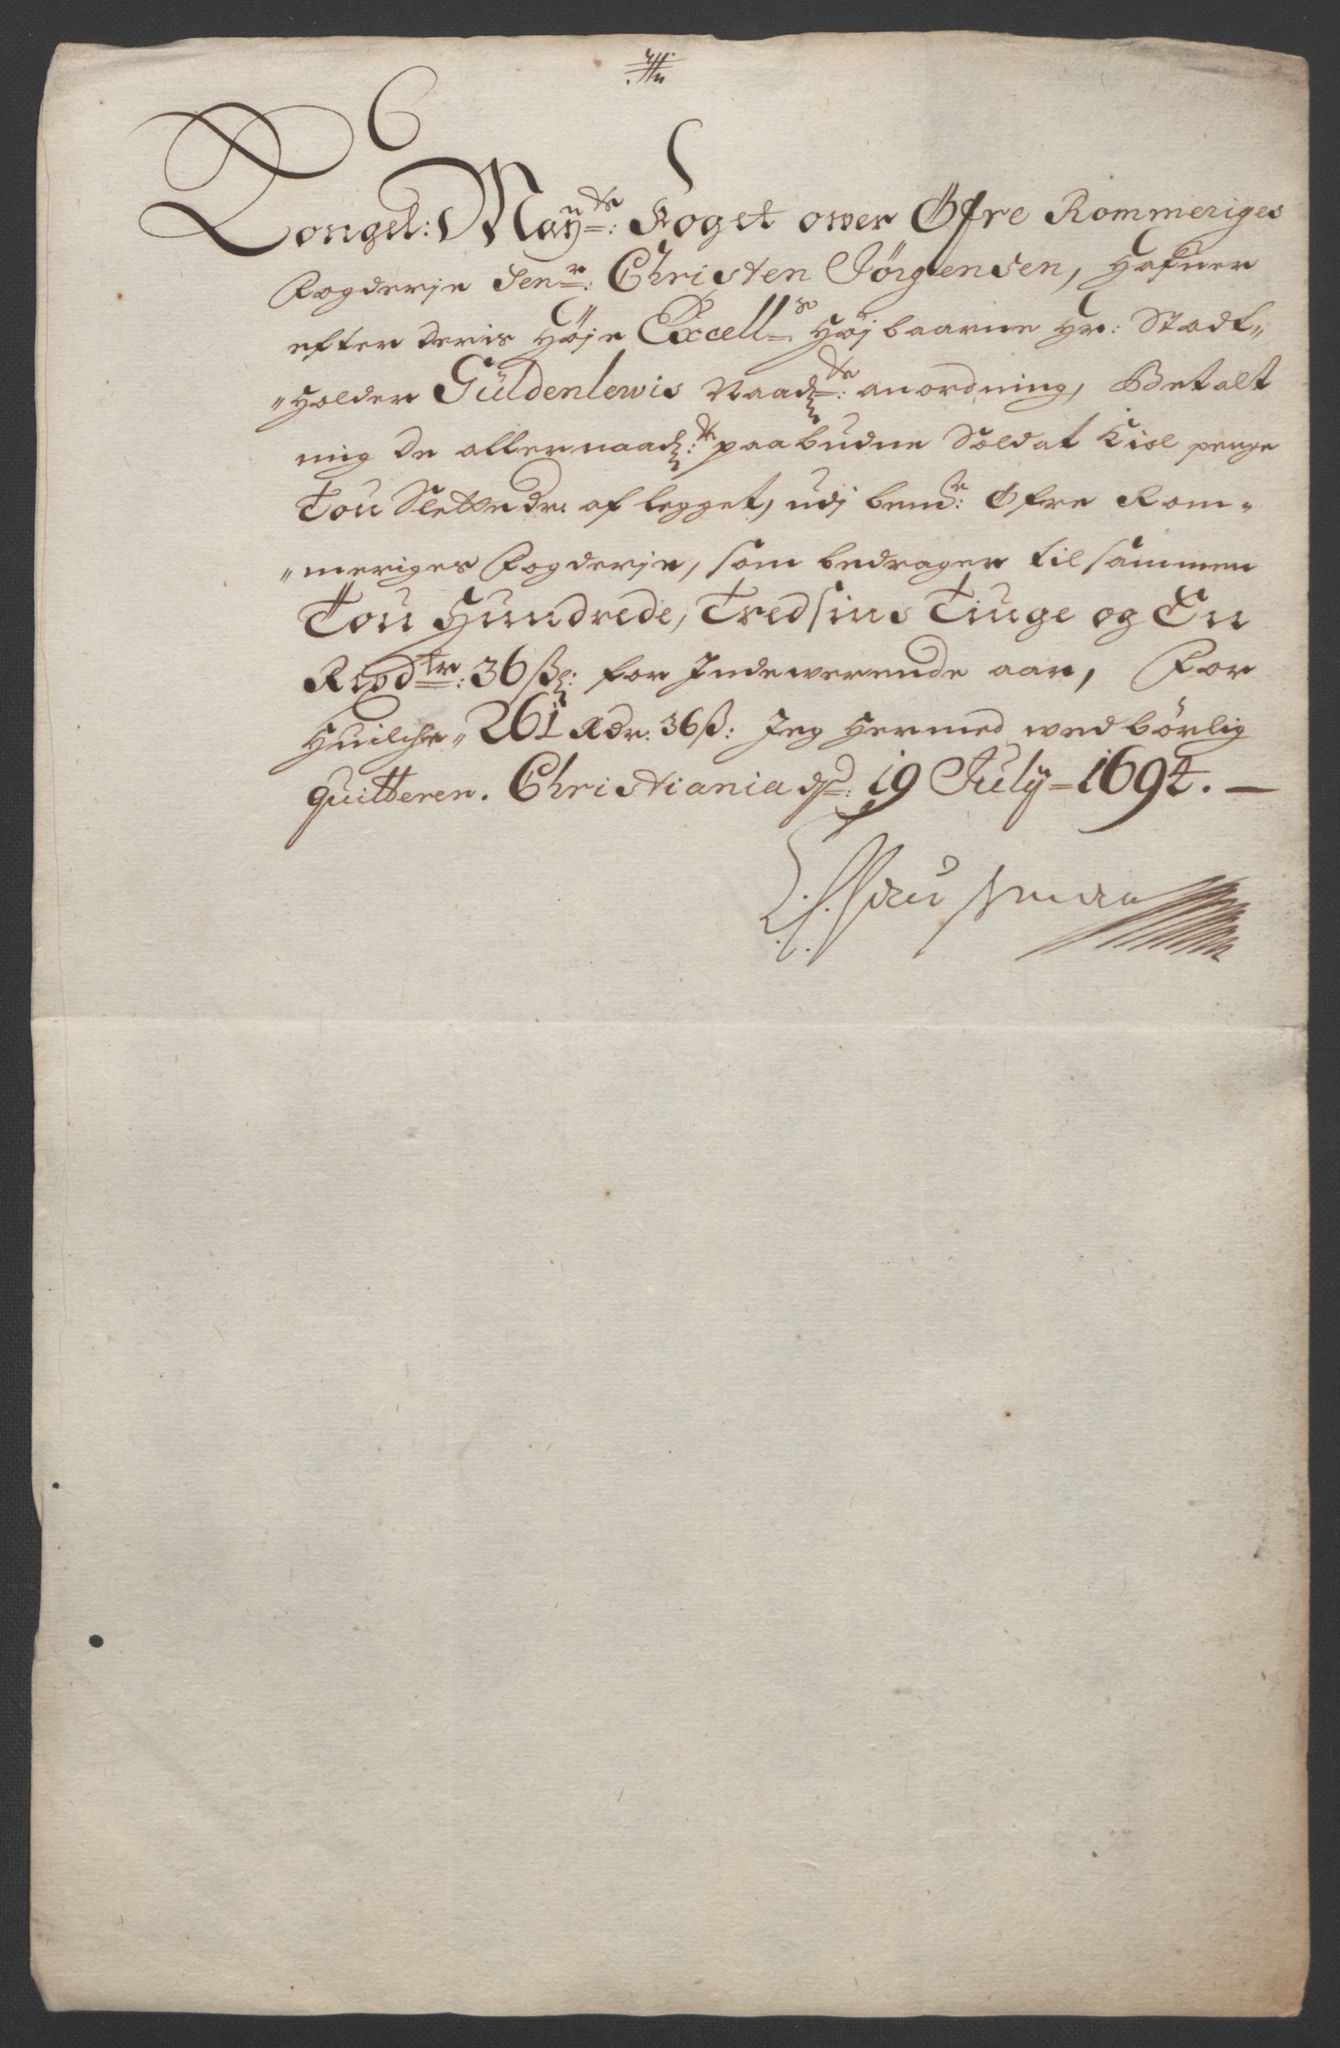 Kongel: May:ts Foget ower Øfre Rommeriges
Fogderje Sen:r Christen Jörgensen, Hafuer
efter deris Høje Excell:s Højbaarne Hr: Stadt-
Holder Güldenlewis Naad:s anordning, Betalt
mig De allernaad:st paabudne Soldat Kiol penge
Tou Slettedr. af legget, udj bem:te Øfre Rom-
meriges Fogderje, som bedrager til sammen
Tou Hundrede, Tredsins Tiuge og En
Rixd:lr: 36 ß: for Indewerende aar, For
Huilche 261 Rdr. 36 ß: Jeg Hermed wed börlig
quitterer. Christiania d: 19 July 1694.